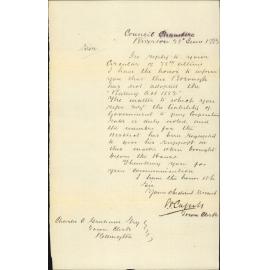 Council Chambers
28th June 1883
Sir
In reply to your
Circular of 25th
I have the honor to inform
you that this Borough
has not adopted the
"Rating Act 1882"
The matter to which you
refer re the liability of
Government to pay Corporation
Rates is duly noted and
the member for the
District has been requested
to give his support on
this matter when brought
before the House
Thanking you for
your communication
I have the honor to be
Sir
Your obedient Servant
Town Clerk
Charles C Graham Esq
Town Clerk
Wellington